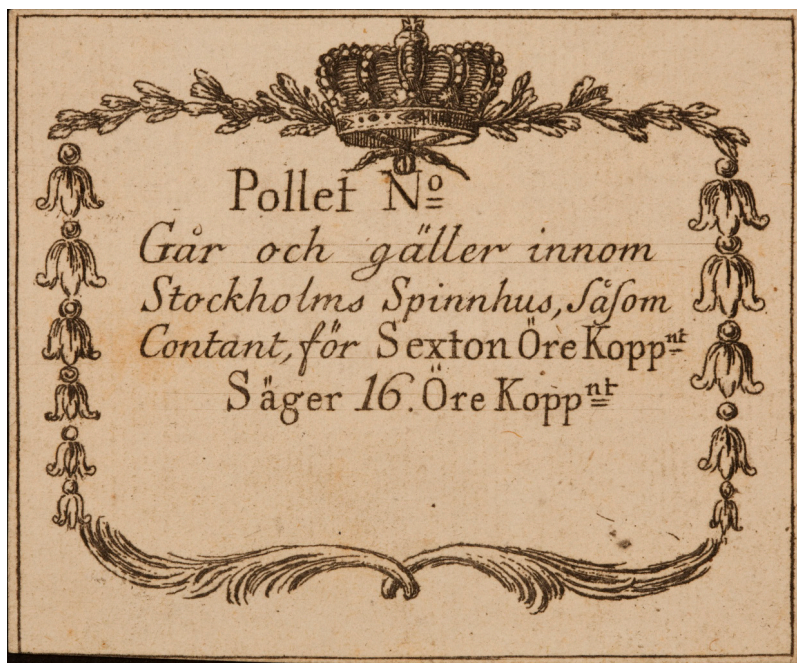 Pollet Nº
Går och gäller innom
Stockholms Spinnhus, ſåſom
Contant, för Sexton Öre Koppnt
Säger 16. Öre Koppnt